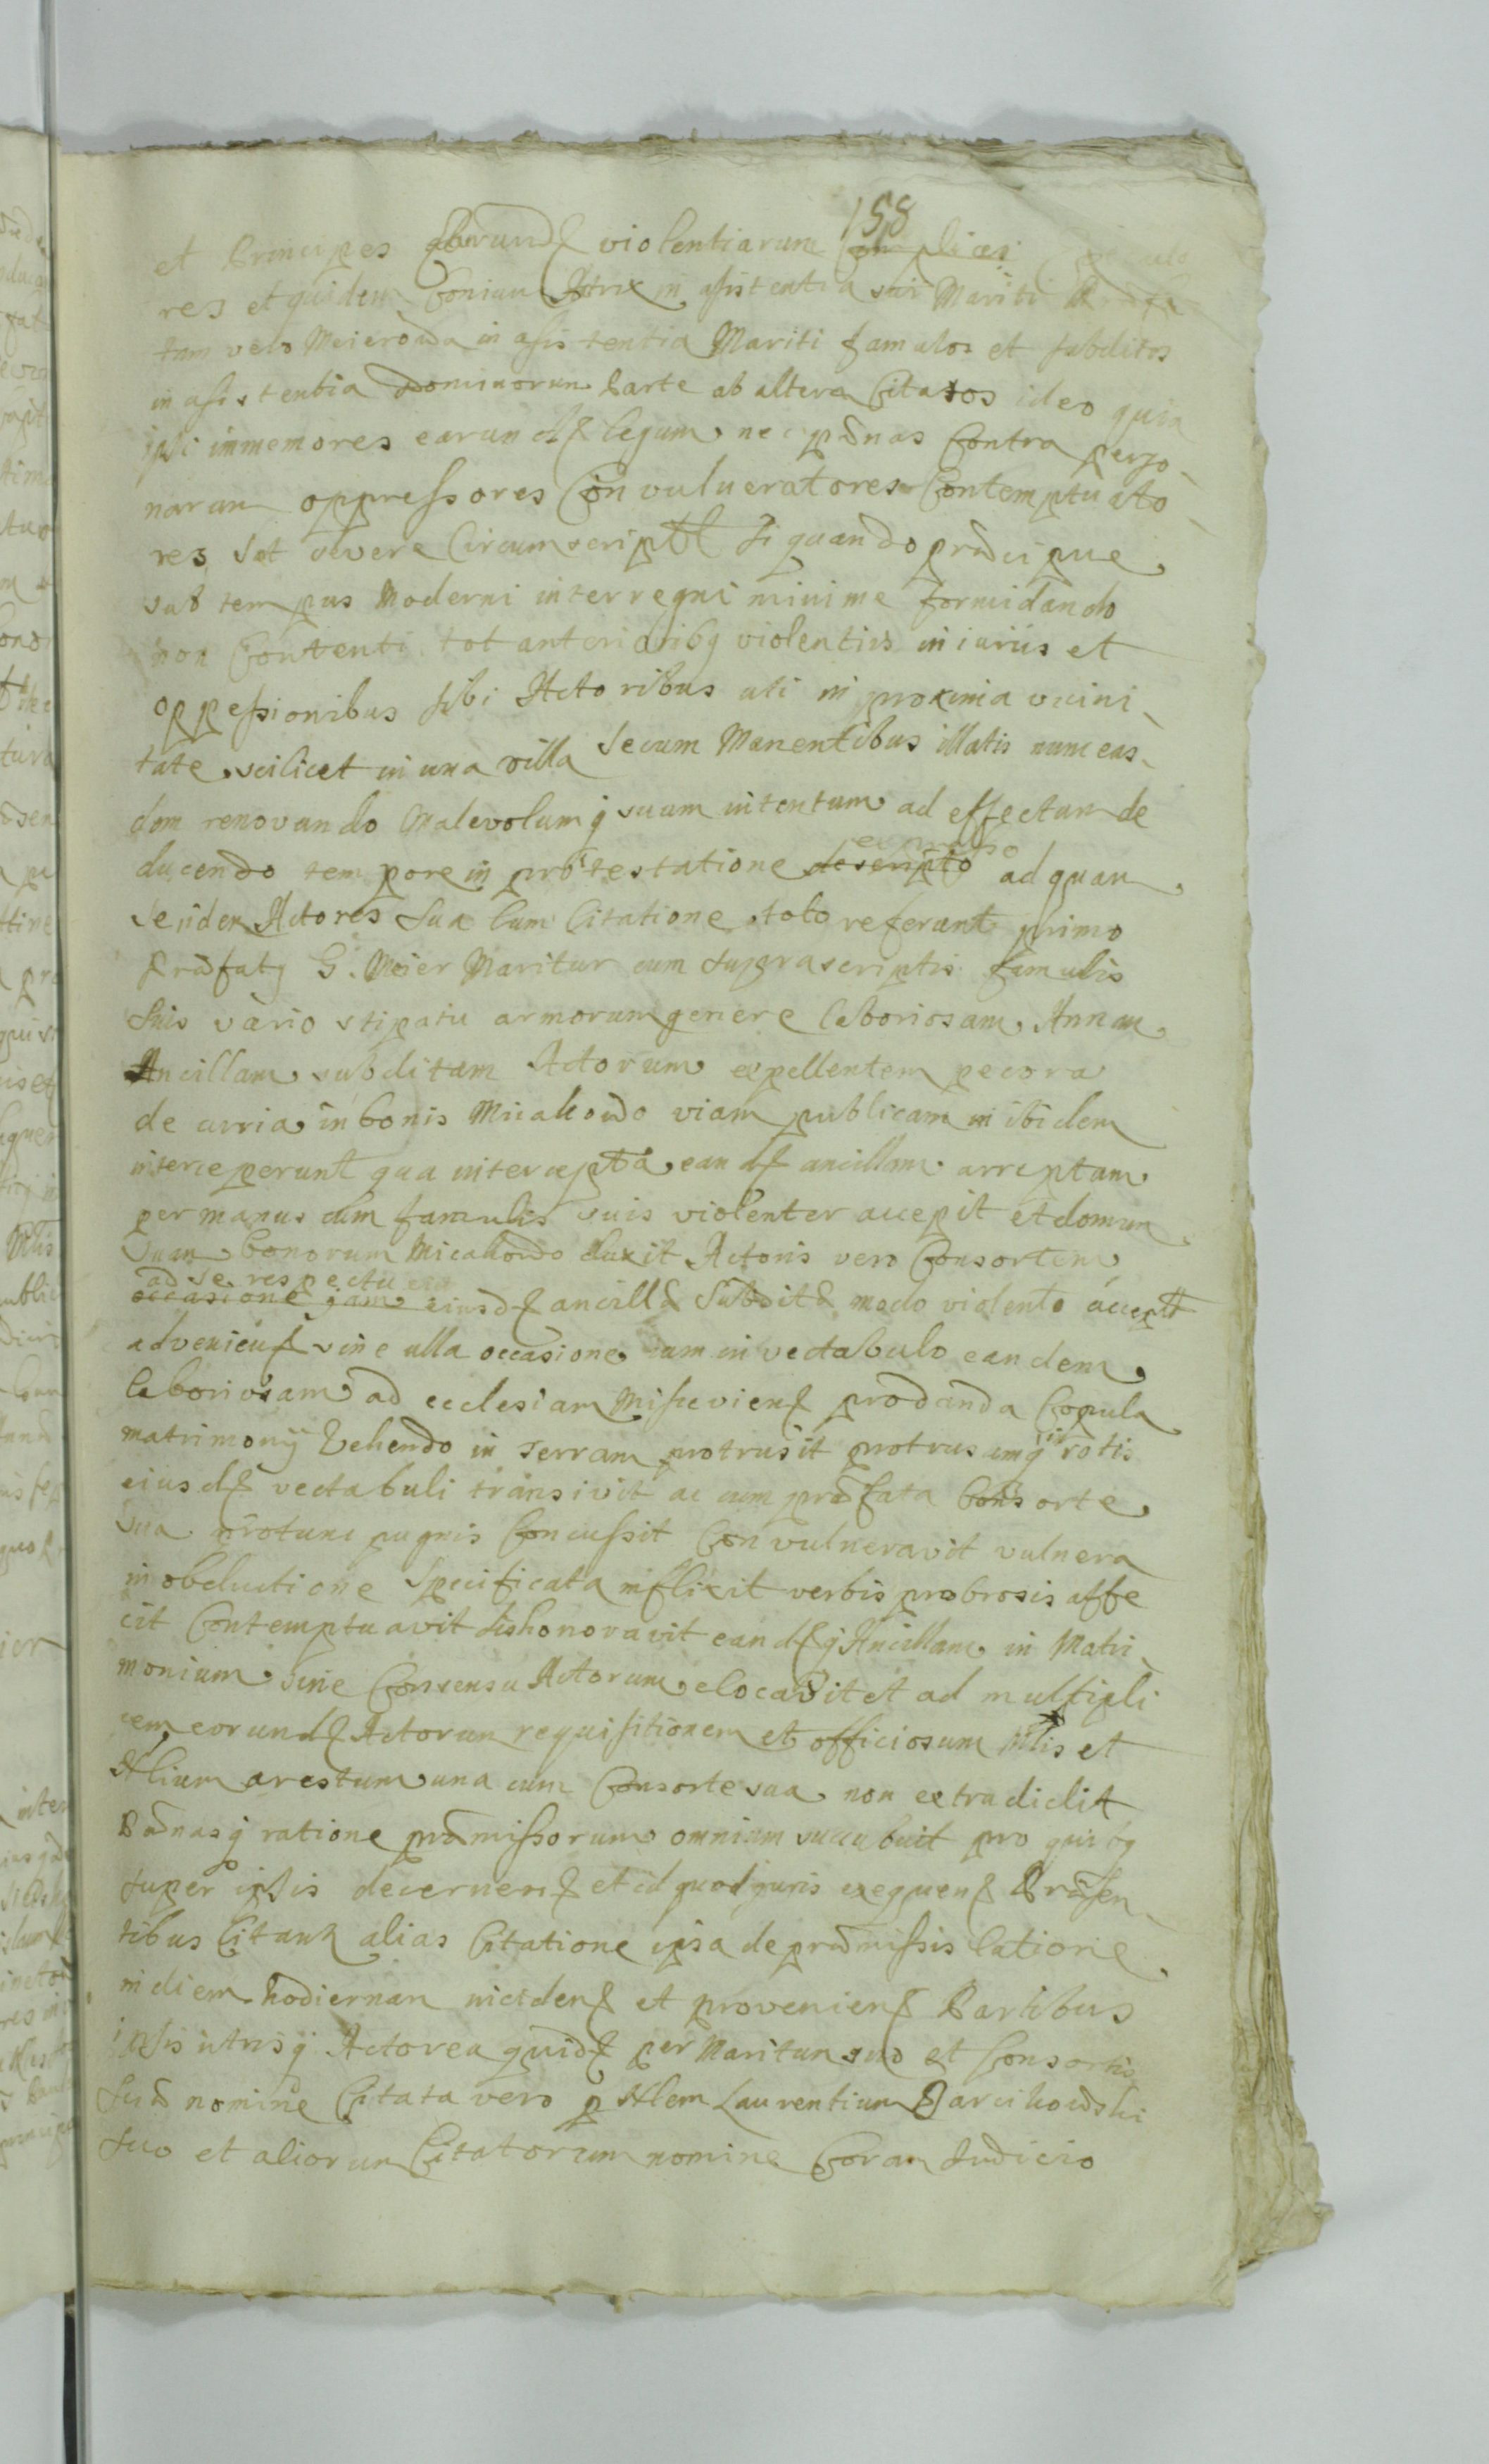 158
et Principes earund violentiarum complices
res et quidem in assistentia sui Mariti
tam vero Meierowa in assistentia Mariti famulos et subditos
in assistentia Dominorum Parte ab altera Citatos ideo quia
ipsi immemores earund legum nec pænas Contra perso-
narum oppressores Convulneratores Contemptuato-
res set vivere Circumscript siquando præcipue
sub tempus Moderni interregni minime formidando
non Contenti tot anterioribq violentiis iniuriis et
oppessionibus sibi Actoribus uti in proxima vicini-
tate scilicet in una villa secum Manentibus illatis nunc eas-
dem renovando Malevolumq suum intentum ad effectum de
ducendo tempore in protestatione descripto expresso ad quam
se iidem Actores sua Cum Citatione toto referant primo
Præfatq G. Meier Maritus cum suprascriptis famulis
suis vario stipatu armorum genere laboriosam Annam
Ancillam subditam Actorum expellentem pecora
de curria in bonis Micakowo viam publicam in ibidem
interceperunt qua intercepta eand ancillam arreptam
per manus cum famulis suis violenter accepit et domum
suam bonorum Micakowo duxit Actoris vero Consortem
ad se respectu
occasione eiusd ancillæ Subditæ modo violento accept
advenien sine ulla occasione eam in vectabulo eandem
laboriosam ad ecclesiam prodanda Copula
matrimonij Vehendo in terram protrusit protrusamq rotis
eiusd vectabuli transivit ac cum præfata Consorte
sua protunc pugnis Concussit Convulneravit vulnera
in obductione Specificata inflixit verbis probrosis affe
cit Contemptuavit dishonoravit eandq Ancillam in Matri-
monium sine Consensu Actorum elocavit et ad multipli
cem eorund Actorum requisitionem et officiosum Mlis et
Alium arestum una cum Consorte sua non extradidit
Pænasq ratione præmissorum omnium succubuit pro quibq
super ipsis decernen et id quod juris exequen Præsen-
tibus Citant alias Citatione ipsa de præmissis latione
in diem hodiernam inciden et provenien Partibus
ipsis utrisq Actorea quid per Maritum suo et Consortis
suæ nomine Citata vero p Nlem Laurentium Darcikowski
suo et aliorum Citatorum nomine Coram Judicio